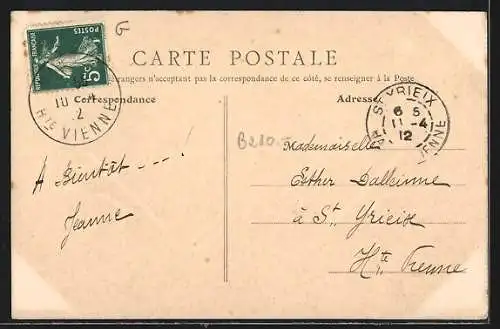 G
POSTES
REPUBLIQUE FRANÇAISE
5c
CARTE POSTALE
étrangers n'acceptant pas la correspondance de ce côté, se renseigner à la Poste
Correspondance
Adresse
10
2
HTE VIENNE
ST YRIEIX
6 5
11-4
12
VIENNE
B210.-
A Bientôt ---!
Jeanne
Mademoiselle
Esther
à St Yrieix
Hte Vienne